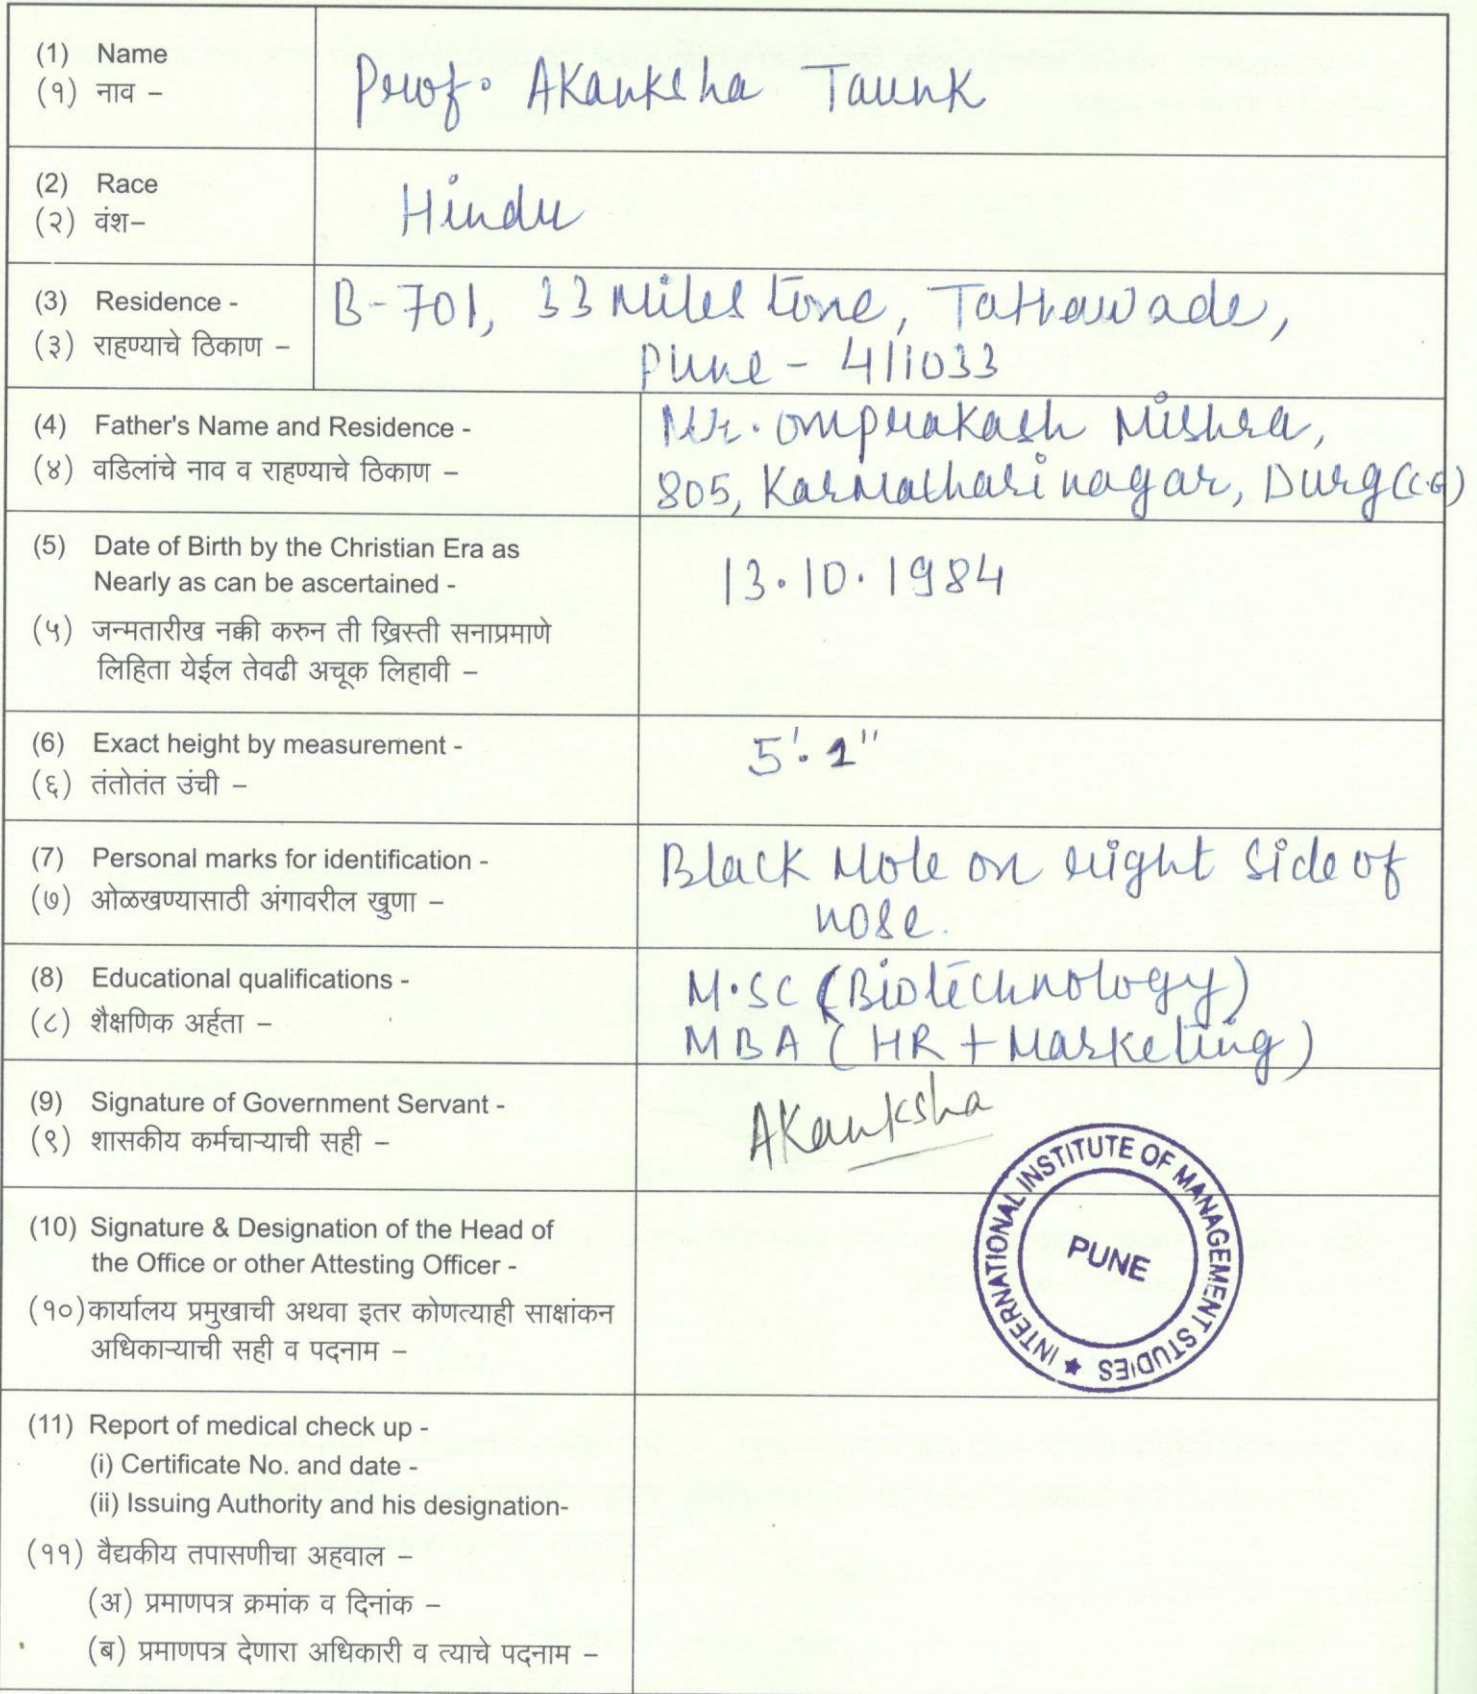 (1) Name
(१) नाव –
Prof. Akanksha Taunk
(2) Race
(२) वंश–
Hindu
(3) Residence -
(३) राहण्याचे ठिकाण –
B-701, 33 Milestone, Tathawade,
Pune - 411033
(4) Father's Name and Residence -
(४) वडिलांचे नाव व राहण्याचे ठिकाण –
Mr. Omprakash Mishra,
805, Karmathari nagar, Durg (C.G)
(5) Date of Birth by the Christian Era as
Nearly as can be ascertained -
(५) जन्मतारीख नक्की करुन ती ख्रिस्ती सनाप्रमाणे
लिहिता येईल तेवढी अचूक लिहावी –
13.10.1984
(6) Exact height by measurement -
(६) तंतोतंत उंची –
5'.1"
(7) Personal marks for identification -
(७) ओळखण्यासाठी अंगावरील खुणा –
Black Mole on right side of
nose.
(8) Educational qualifications -
(८) शैक्षणिक अर्हता –
M.SC (Biotechnology)
MBA (HR + Marketing)
(9) Signature of Government Servant -
(९) शासकीय कर्मचाऱ्याची सही –
Akanksha
(10) Signature & Designation of the Head of
the Office or other Attesting Officer -
(१०) कार्यालय प्रमुखाची अथवा इतर कोणत्याही साक्षांकन
अधिकाऱ्याची सही व पदनाम –
INTERNATIONAL INSTITUTE OF MANAGEMENT STUDIES ★
PUNE
(11) Report of medical check up -
(i) Certificate No. and date -
(ii) Issuing Authority and his designation-
(११) वैद्यकीय तपासणीचा अहवाल –
(अ) प्रमाणपत्र क्रमांक व दिनांक –
(ब) प्रमाणपत्र देणारा अधिकारी व त्याचे पदनाम –